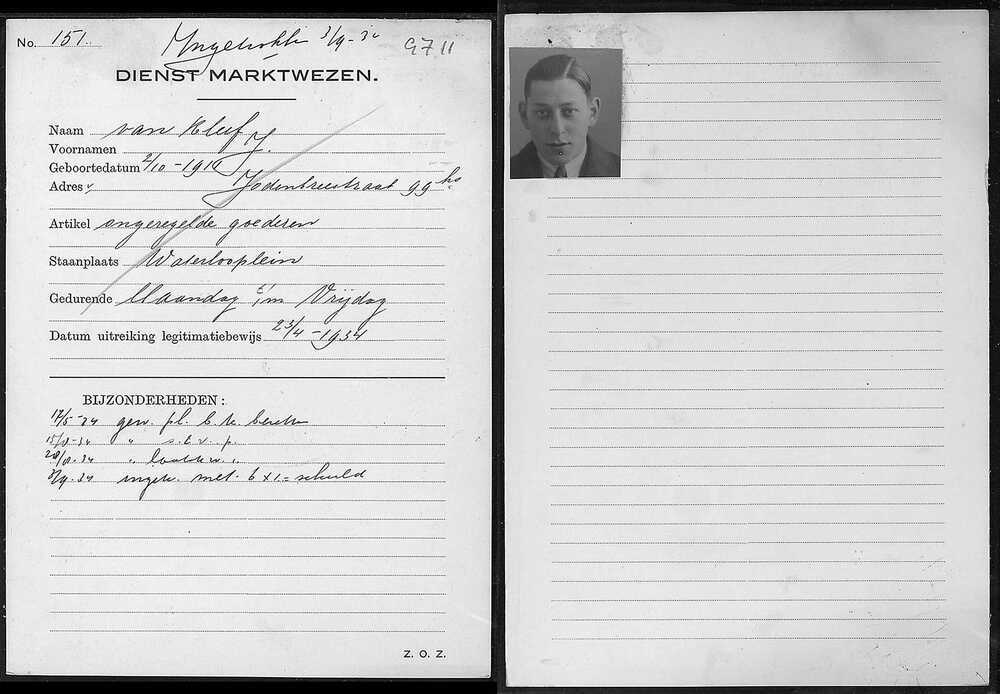 No. 151.
Ingetrokken 3/9-34
G 7 11
DIENST MARKTWEZEN.
Naam van Kleef J.
Voornamen
Geboortedatum 2/10-1916
Adres Jodenbreestraat 99 hs
Artikel ongeregelde goederen
Staanplaats Waterlooplein
Gedurende Maandag t/m Vrijdag
Datum uitreiking legitimatiebewijs 23/4-1934
BIJZONDERHEDEN:
17/5-34 gew. pl. b. n.
15/8-34 " s. t. v. p.
20/8.34 " laatste "
3/9.34 ingetr. met 6 x 1.= schuld
Z. O. Z.